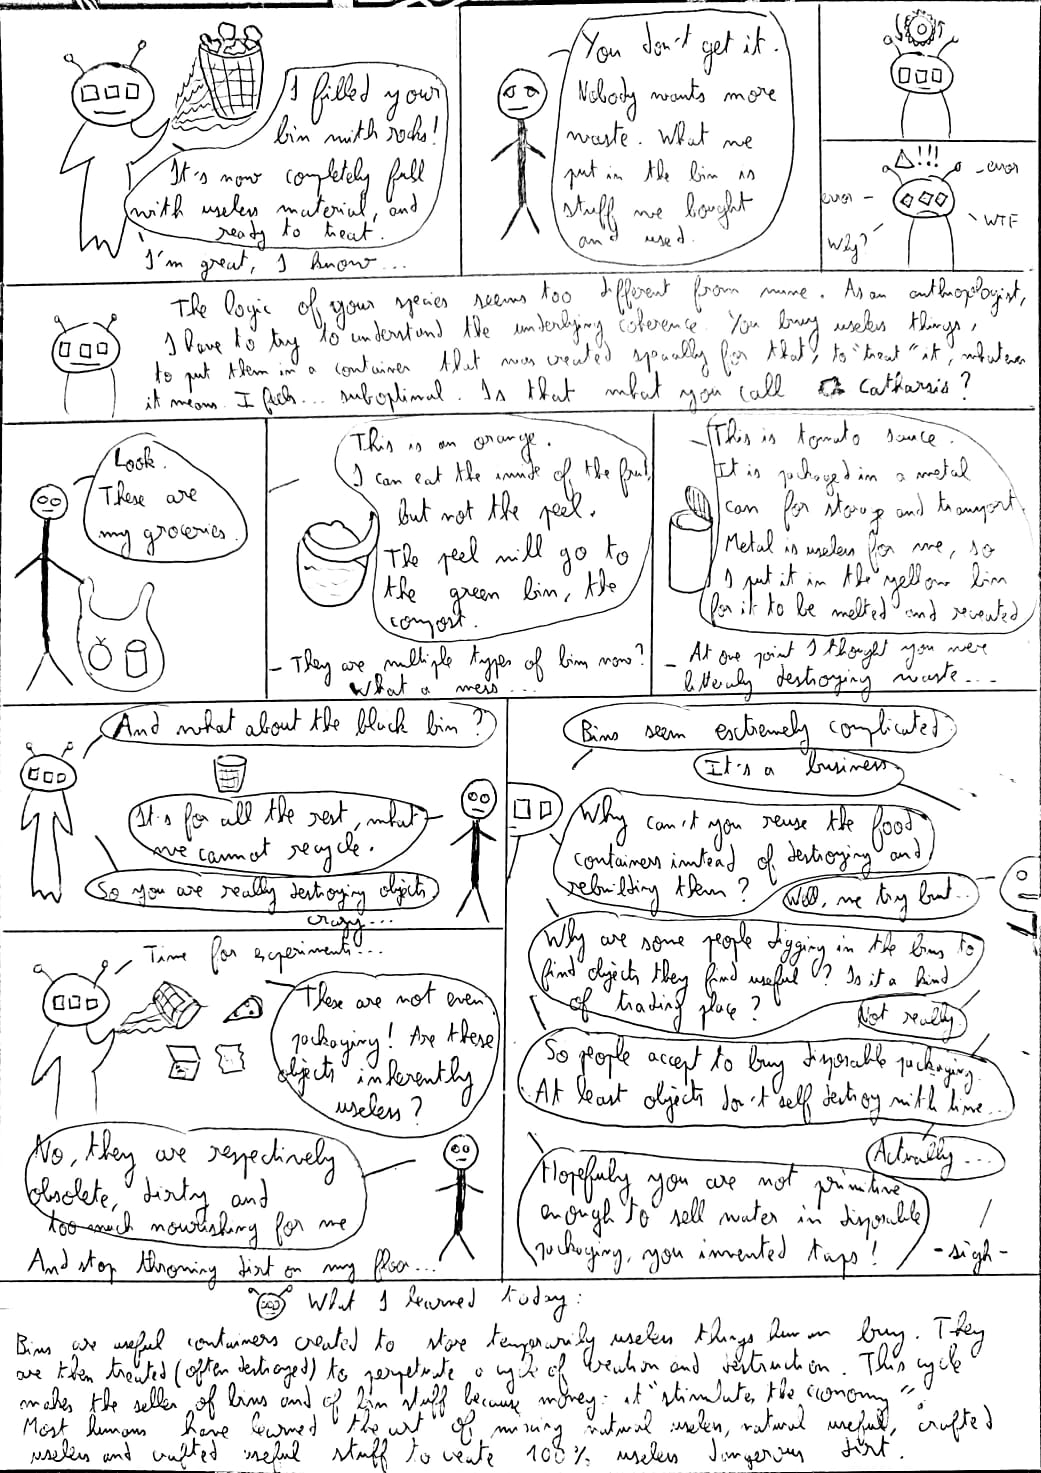 I filled your
bin with rocks!
It's now completely full
with useless material, and
ready to treat.
I'm great, I know...
You don't get it.
Nobody wants more
waste. What we
put in the bin is
stuff we bought
and used.
!!!
error
error
WTF
Why?
The logic of your species seems too different from mine. As an anthropologist,
I have to try to understand the underlying coherence. You buy useless things,
to put them in a container that was created specially for that, to "treat" it, whatever
it means. I feel... suboptimal. Is that what you call a Catharsis?
Look.
These are
my groceries.
This is an orange.
I can eat the inside of the fruit
but not the peel.
The peel will go to
the green bin, the
compost.
- They are multiple types of bin now?
What a mess...
This is tomato sauce.
It is packaged in a metal
can for storag and transport.
Metal is useless for me, so
I put it in the yellow bin
for it to be melted and recreated
- At one point I thought you were
litteraly destroying waste...
And what about the black bin?
It's for all the rest, what
we cannot recycle.
So you are really destroying objects,
crazy...
Bins seem extremely complicated
It's a business.
Why can't you reuse the food
containers instead of destroying and
rebuilding them?
Well, we try but...
Why are some people digging in the bins to
find objects they find useful? Is it a kind
of trading place?
Not really.
So people accept to buy disposable packaging.
At least objects don't self destroy with time...
Actually...
Hopefuly you are not primitive
enough to sell water in disposable
packaging, you invented taps!
- sigh -
Time for experiments...
These are not even
packaging! Are these
objects inherently
useless?
No, they are respectively
obsolete, dirty and
too much nourishing for me
And stop throwing dirt on my floor...
What I learned today:
Bins are useful containers created to store temporarily useless things human buy. They
are then treated (often destroyed) to perpetuate a cycle of creation and destruction. This cycle
makes the seller of bins and of bin stuff because money: it "stimulates the economy".
Most humans have learned the art of mixing natural useless, natural useful, crafted
useless and crafted useful stuff to create 100% useless dangerous dirt.